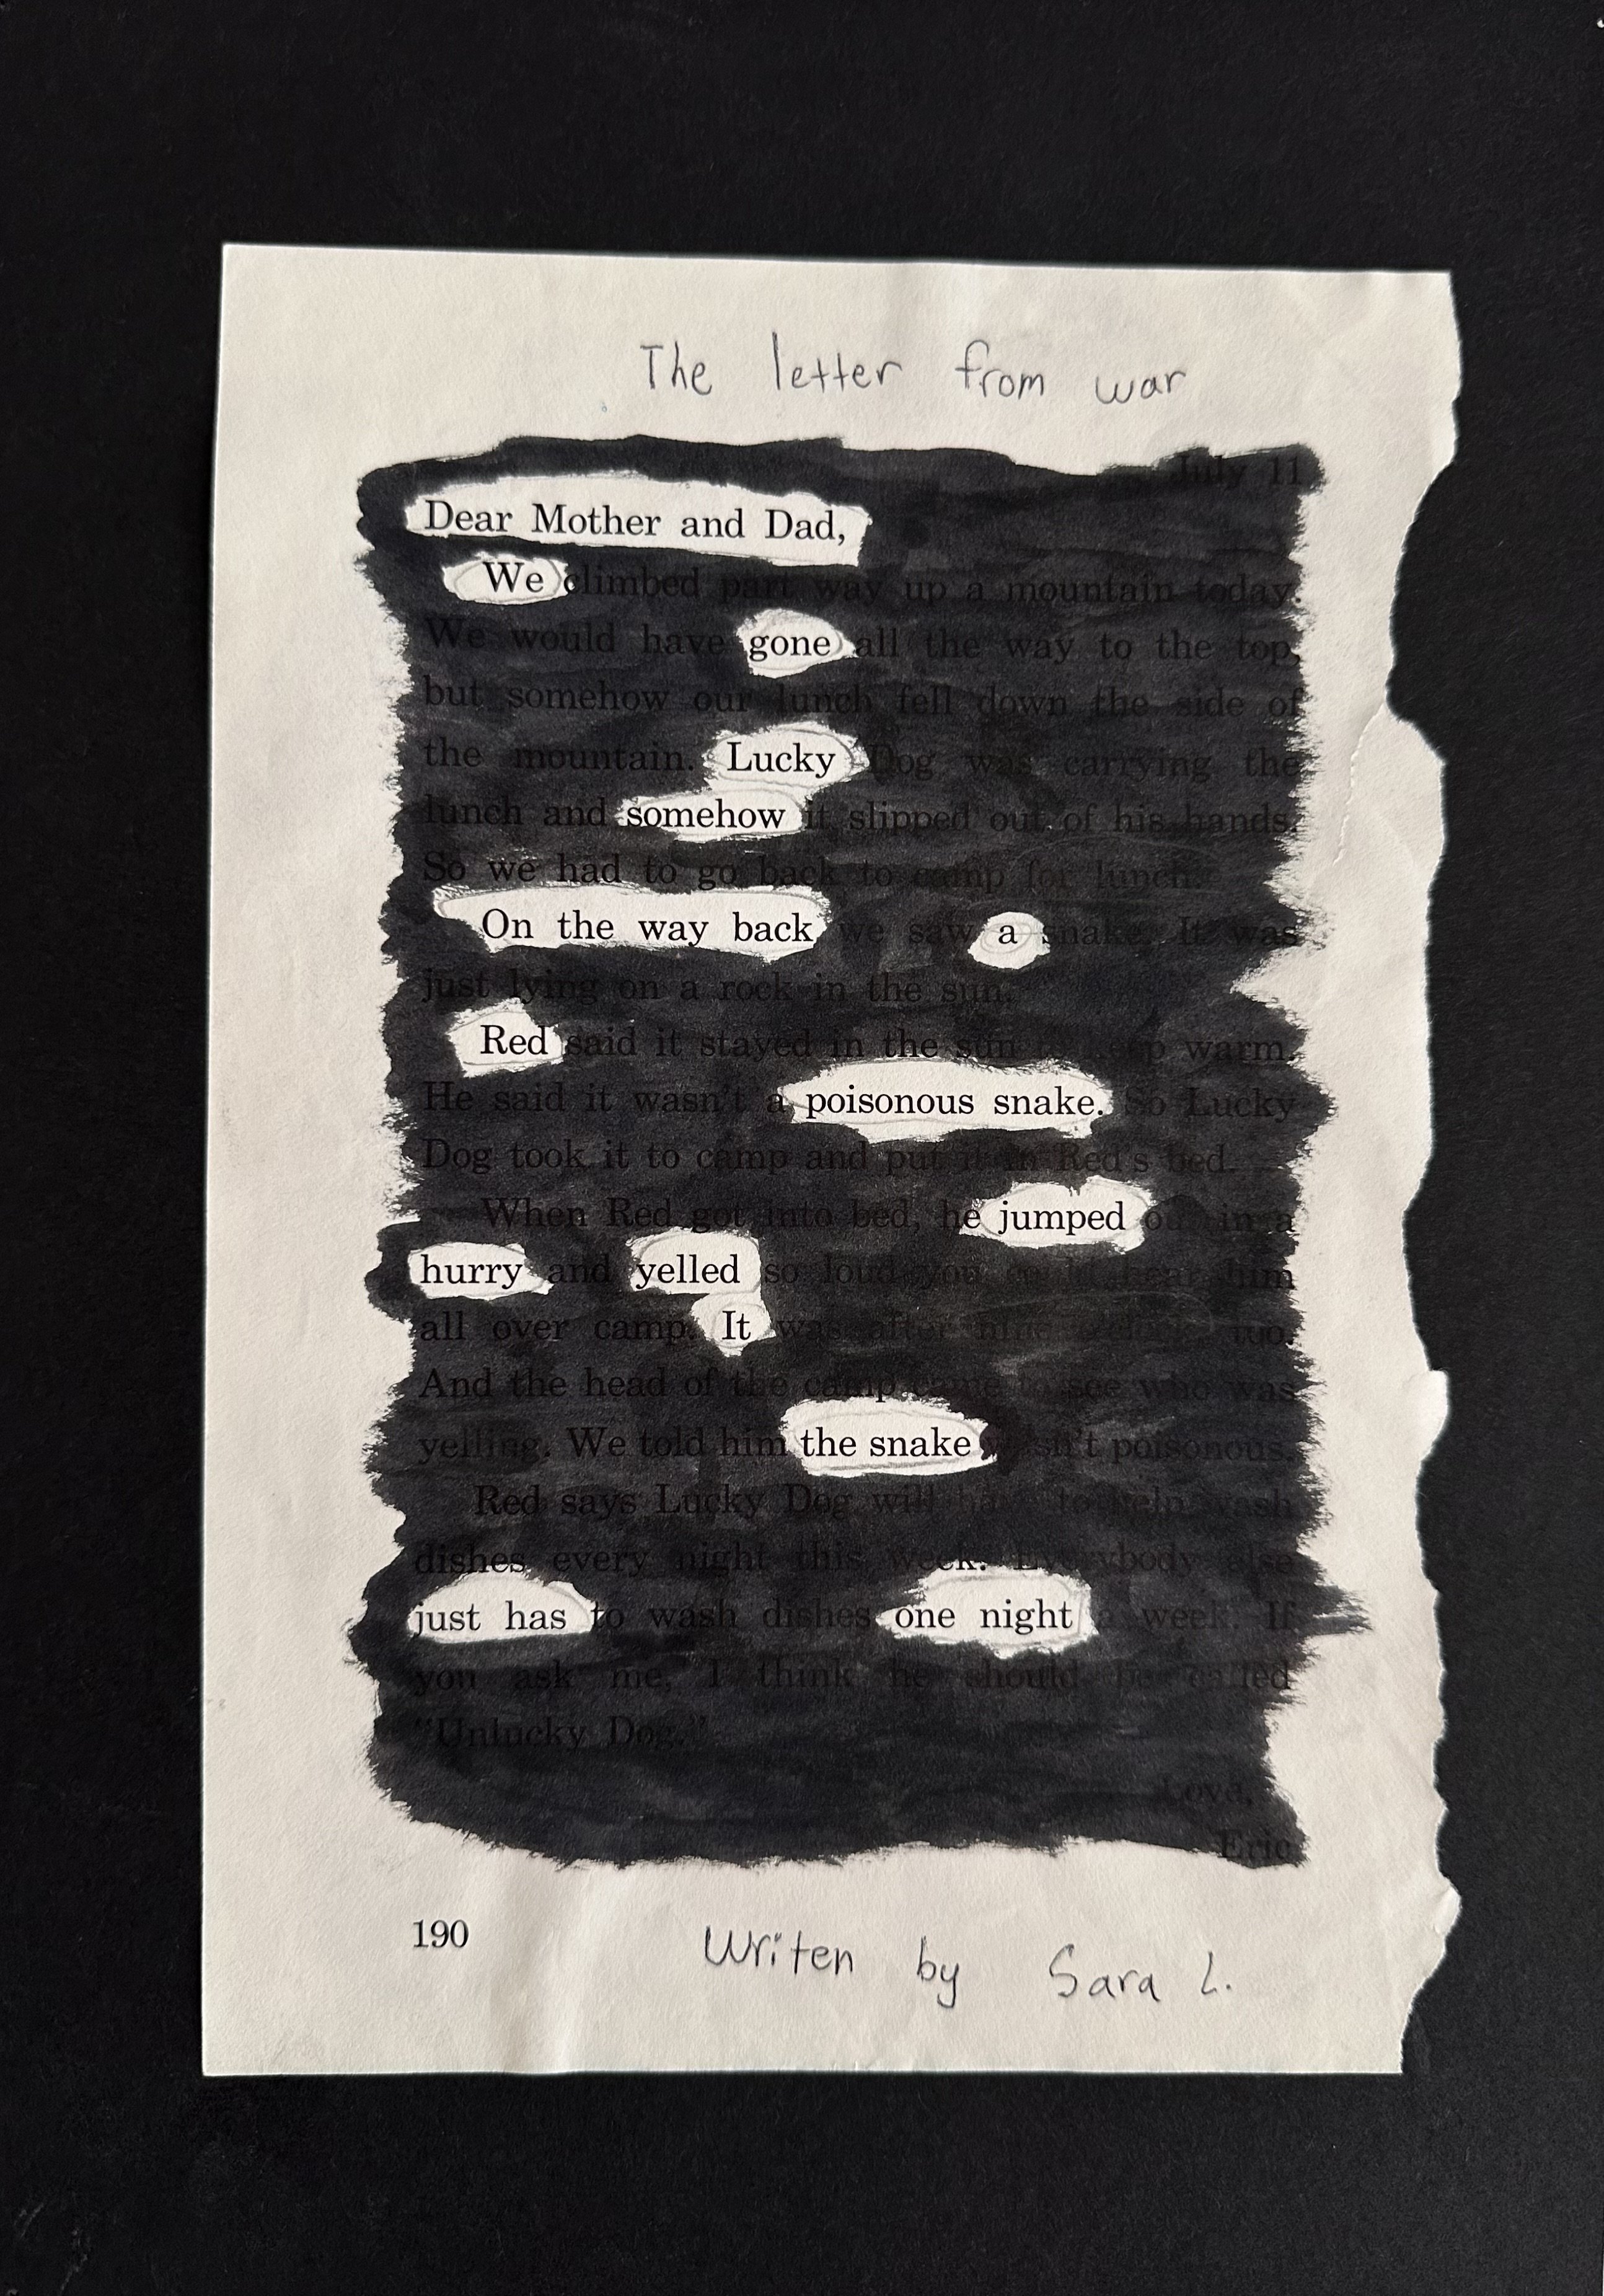 The letter from war
July 11
Dear Mother and Dad,
We climbed part way up a mountain today.
We would have gone all the way to the top,
but somehow our lunch fell down the side of
the mountain. Lucky Dog was carrying the
lunch and somehow it slipped out of his hands.
So we had to go back to camp for lunch.
On the way back we saw a snake. It was
just lying on a rock in the sun.
Red said it stayed in the sun to keep warm.
He said it wasn't a poisonous snake. So Lucky
Dog took it to camp and put it in Red's bed.
When Red got into bed, he jumped out in a
hurry and yelled so loud you could hear him
all over camp. It was after nine too.
And the head of the camp came to see who was
yelling. We told him the snake wasn't poisonous.
Red says Lucky Dog will have to help wash
dishes every night this week. Everybody else
just has to wash dishes one night a week. If
you ask me, I think he should be called
"Unlucky Dog."
Love,
Eric
190
Writen by Sara L.